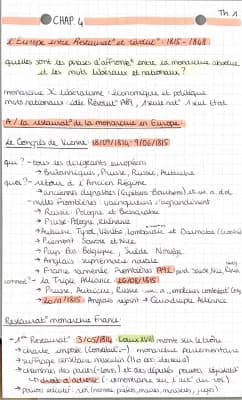 Th. 1
CHAP. 4
l'Europe entre Restaurat° et révolut° : 1815 - 1848
quelles sont les phases d'affrontemt entre la monarchie absolue
et les mvts libéraux et nationaux ?
monarchie X libéralisme : économique et politique
mvts nationaux : idée Révolut°, 1 seule nat° 1 seul Etat
A / la restaurat° de la monarchie en Europe
le Congrès de Vienne 18/09/1814- 9/06/1815
qui ? - tous les dirigeants européens
→ Britanniques, Prusse, Russie, Autriche
quoi ? - retour à l'Ancien Régime
→ anciennes dynasties
- nvlles frontières : vainqueurs s'agrandissent
→ Russie : Pologne et Bessarabie
→ Prusse : Pologne, Rhénanie
→ Autriche : Tyrol, Vénétie, Lombardie et Dalmatie
→ Piémont : Savoie et Nice
→ Pays Bas : Belgique, Suède : Norvège
→ Anglais : suprématie navale
→ France ramenée frontières 1792
comment - la Triple Alliance 26/09/1815
→ Prusse, Autriche, Russie
→ 20/11/1815 Anglais rejoint → Quadruple Alliance
Restaurat° monarchie France :
- 1ère Restaurat° 3/05/1814 Louis XVIII monte sur le trône
→ charte imposée monarchie parlementaire
→ suffrage censitaire masculin
→ chambres des pairs et des députés : pouvoir législatif
→ droit d'adresse
→ pouvoir exécutif : roi